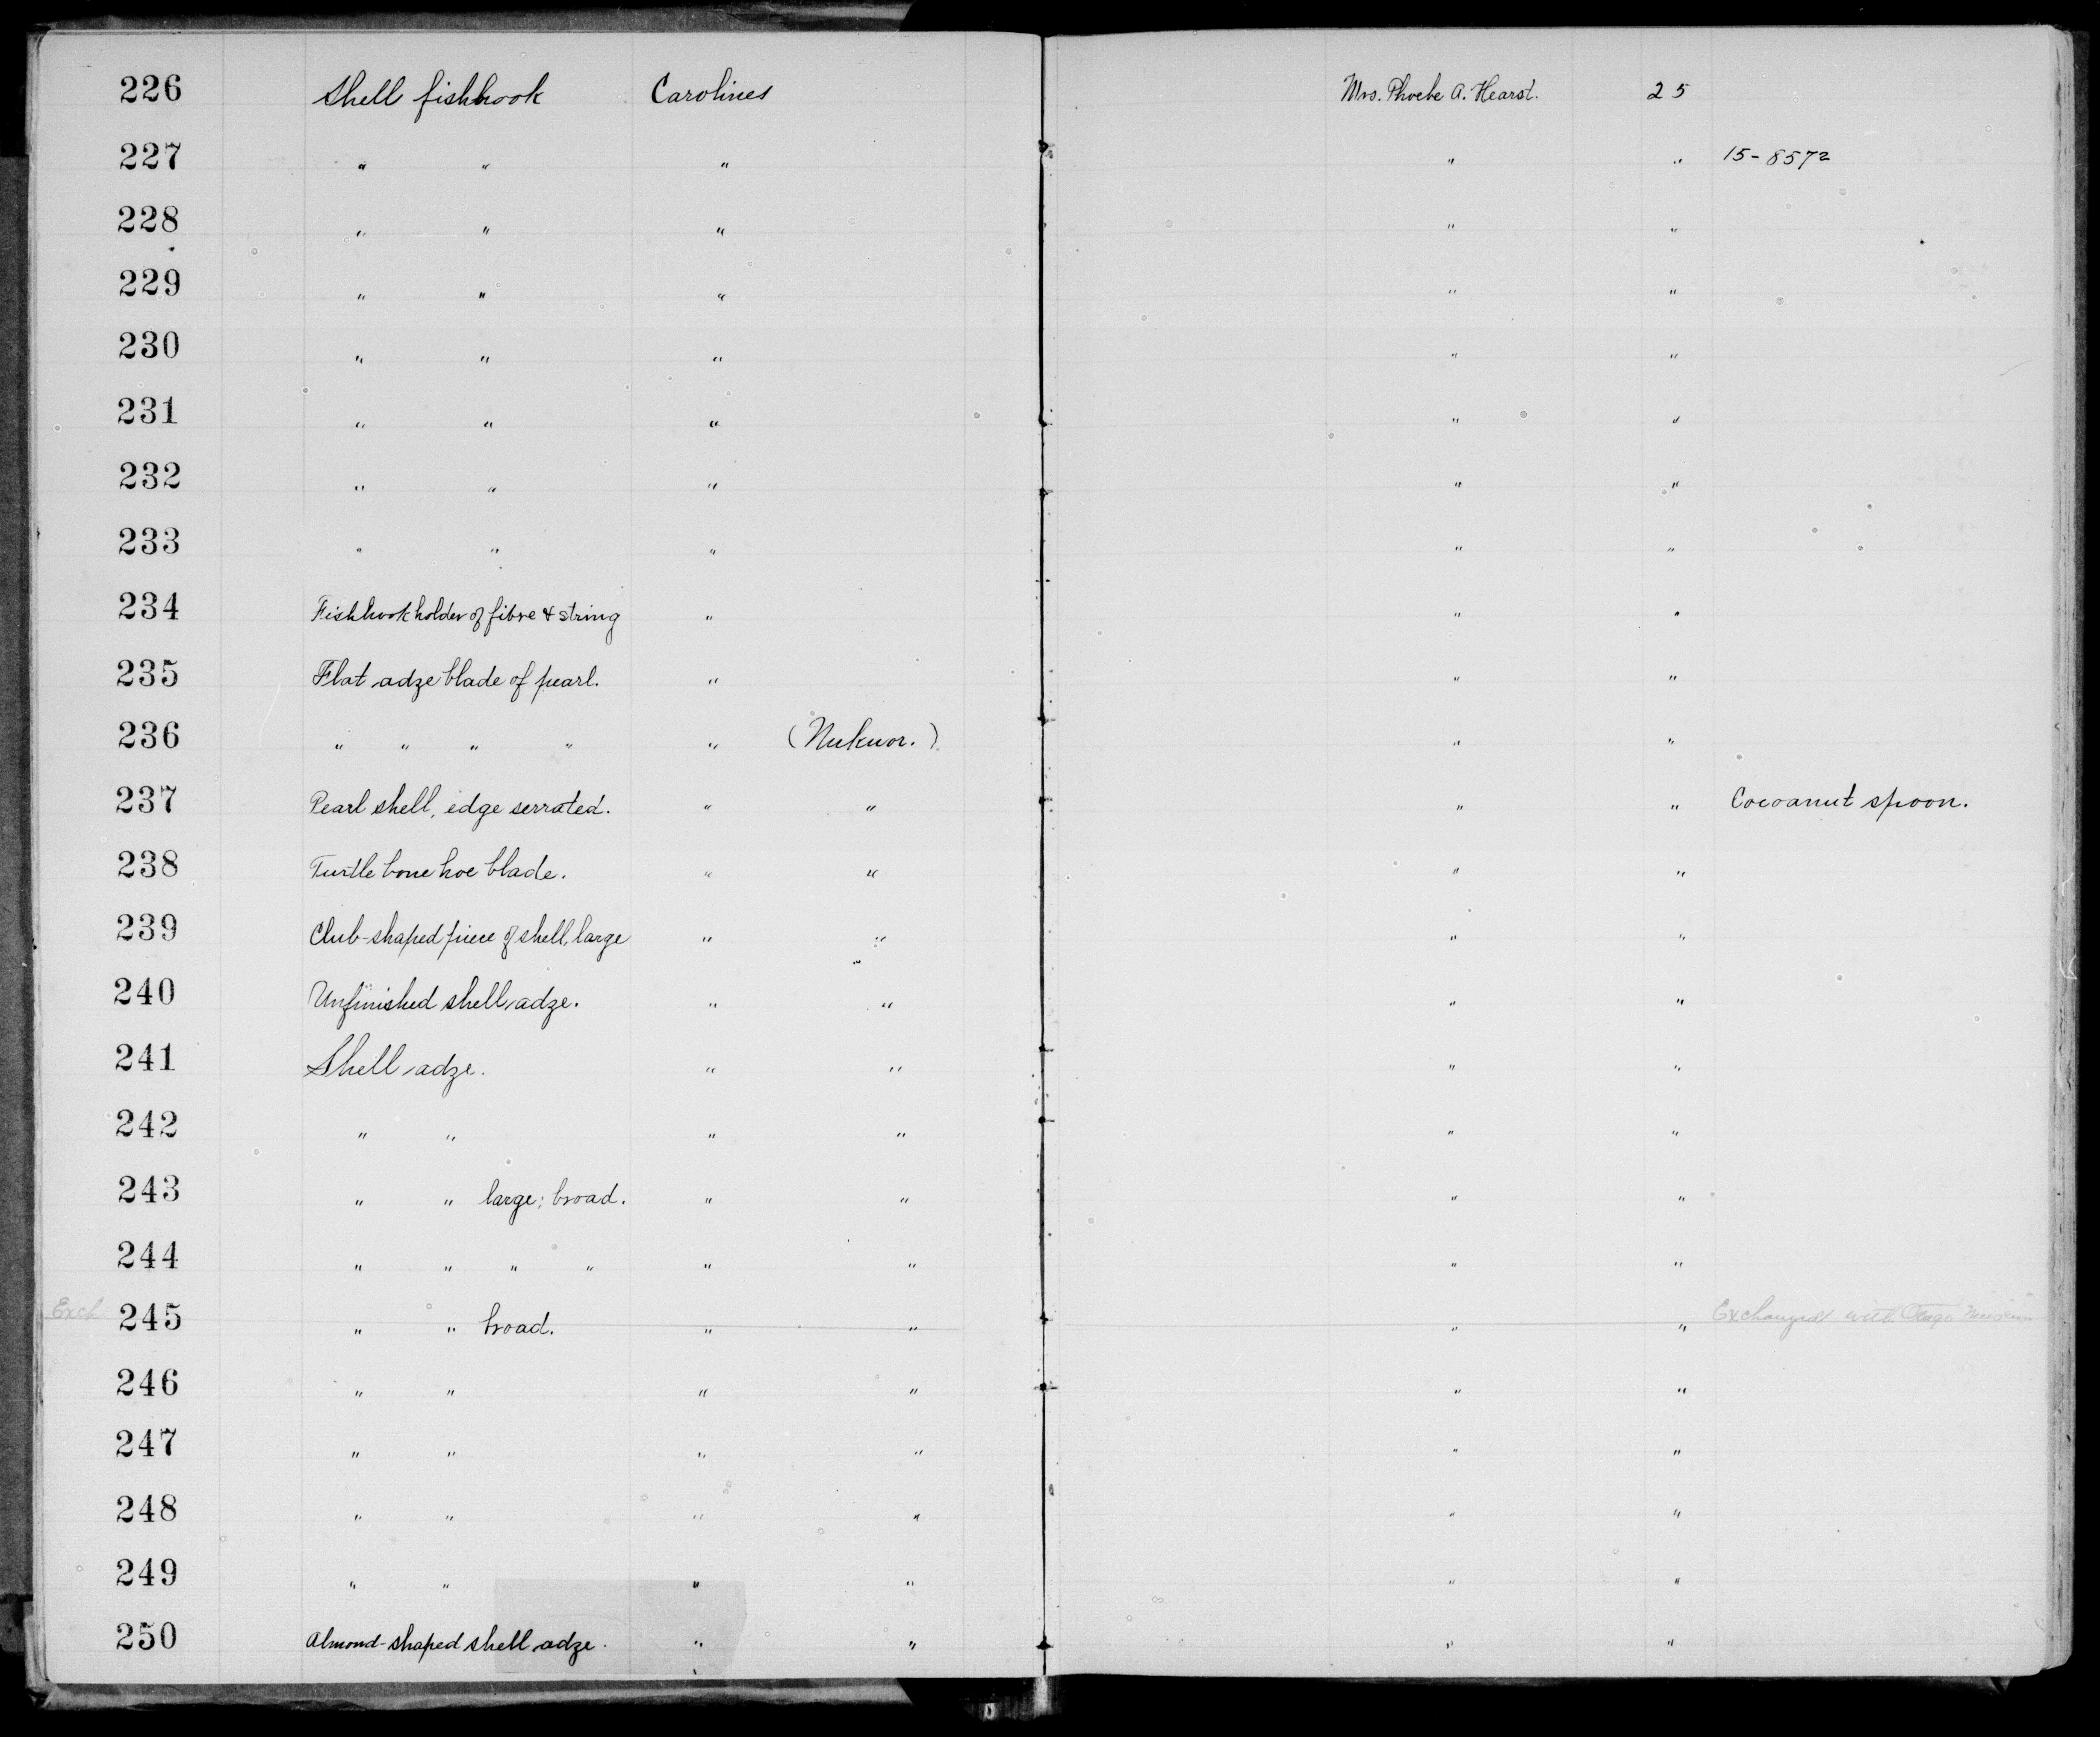 226 Shell fishhook Carolines Mrs. Phoebe A. Hearst. 25
227 " " " " " 15-8572
228 " " " " "
229 " " " " "
230 " " " " "
231 " " " " "
232 " " " " "
233 " " " " "
234 Fishhook holder of fibre & string " " "
235 Flat adze blade of pearl. " " "
236 " " " " " (Nukuor.) " "
237 Pearl shell, edge serrated. " " " " Cocoanut spoon.
238 Turtle bone hoe blade. " " " "
239 Club-shaped piece of shell, large " " " "
240 Unfinished shell adze. " " " "
241 Shell adze. " " " "
242 " " " " " "
243 " " large; broad. " " " "
244 " " " " " " " "
Exch 245 " " broad. " " " " Exchanged with Otago Museum
246 " " " " " "
247 " " " " " "
248 " " " " " "
249 " " " " " "
250 Almond-shaped shell adze. " " " "